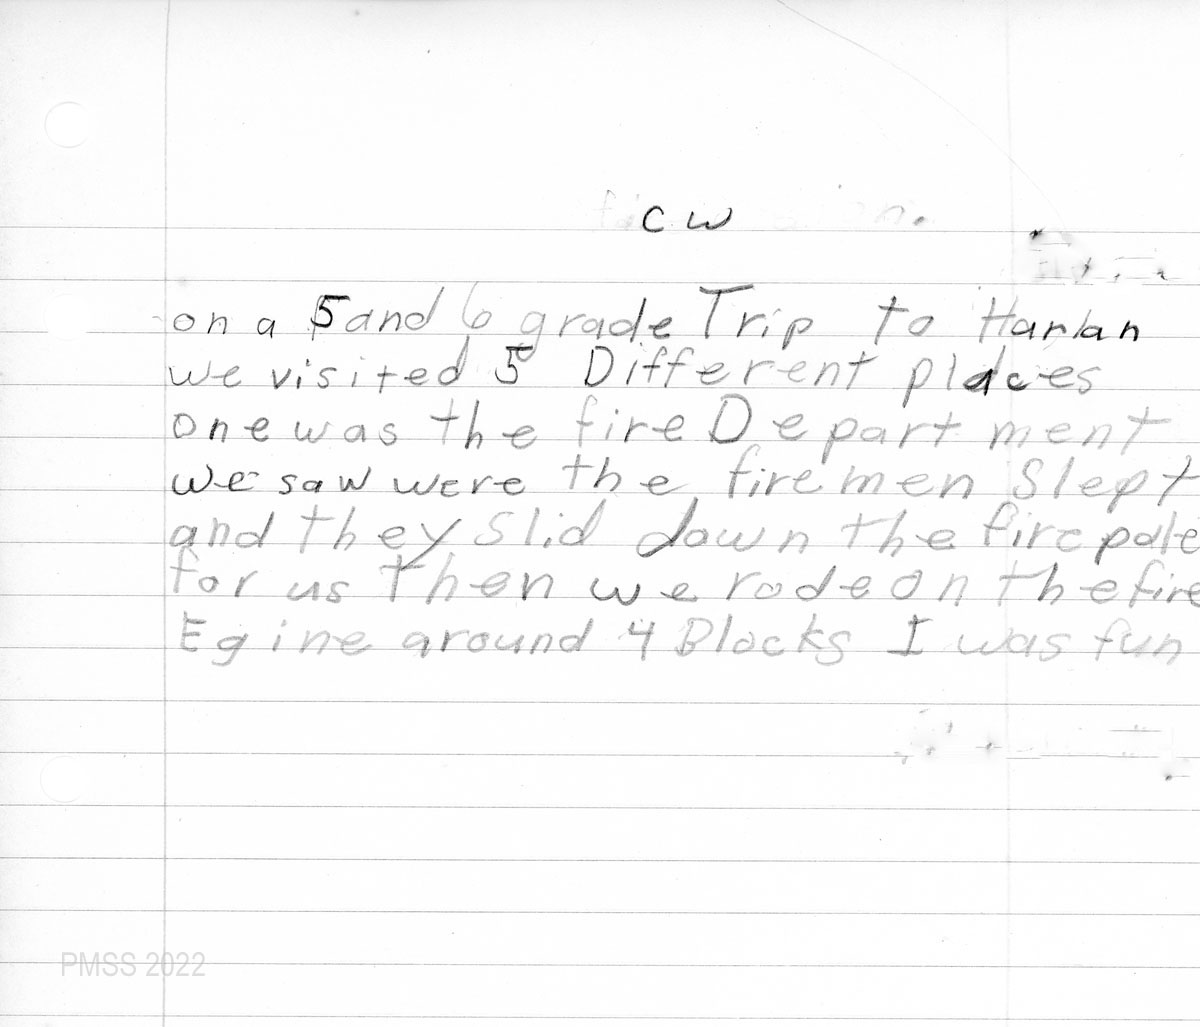 c w
on a 5 and 6 grade Trip to Harlan
we visited 5 Different places
one was the fire Department
we saw were the firemen Slept
and they Slid down the fire pole
for us Then we rode on the fire
Egine around 4 Blocks I was fun
PMSS 2022